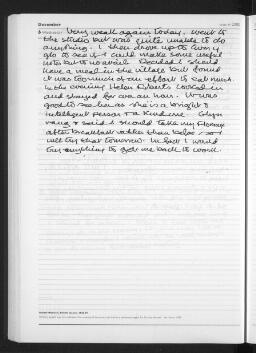 December
Very weak again today. Went to
the studio but was quite unable to do
anything. I then drove up to
to see if I could make some useful
but to no avail. Decided I should
have a meal in the village but found
it was too much of an effort to eat much.
In the evening Helen Roberts looked in
and stayed for over an hour. It was
good to see her as she is a bright &
intelligent person & a kind one. Glyn
rang & said I should take my
after breakfast rather than before so I
will try that tomorrow. In fact I would
try anything to get me back to work.